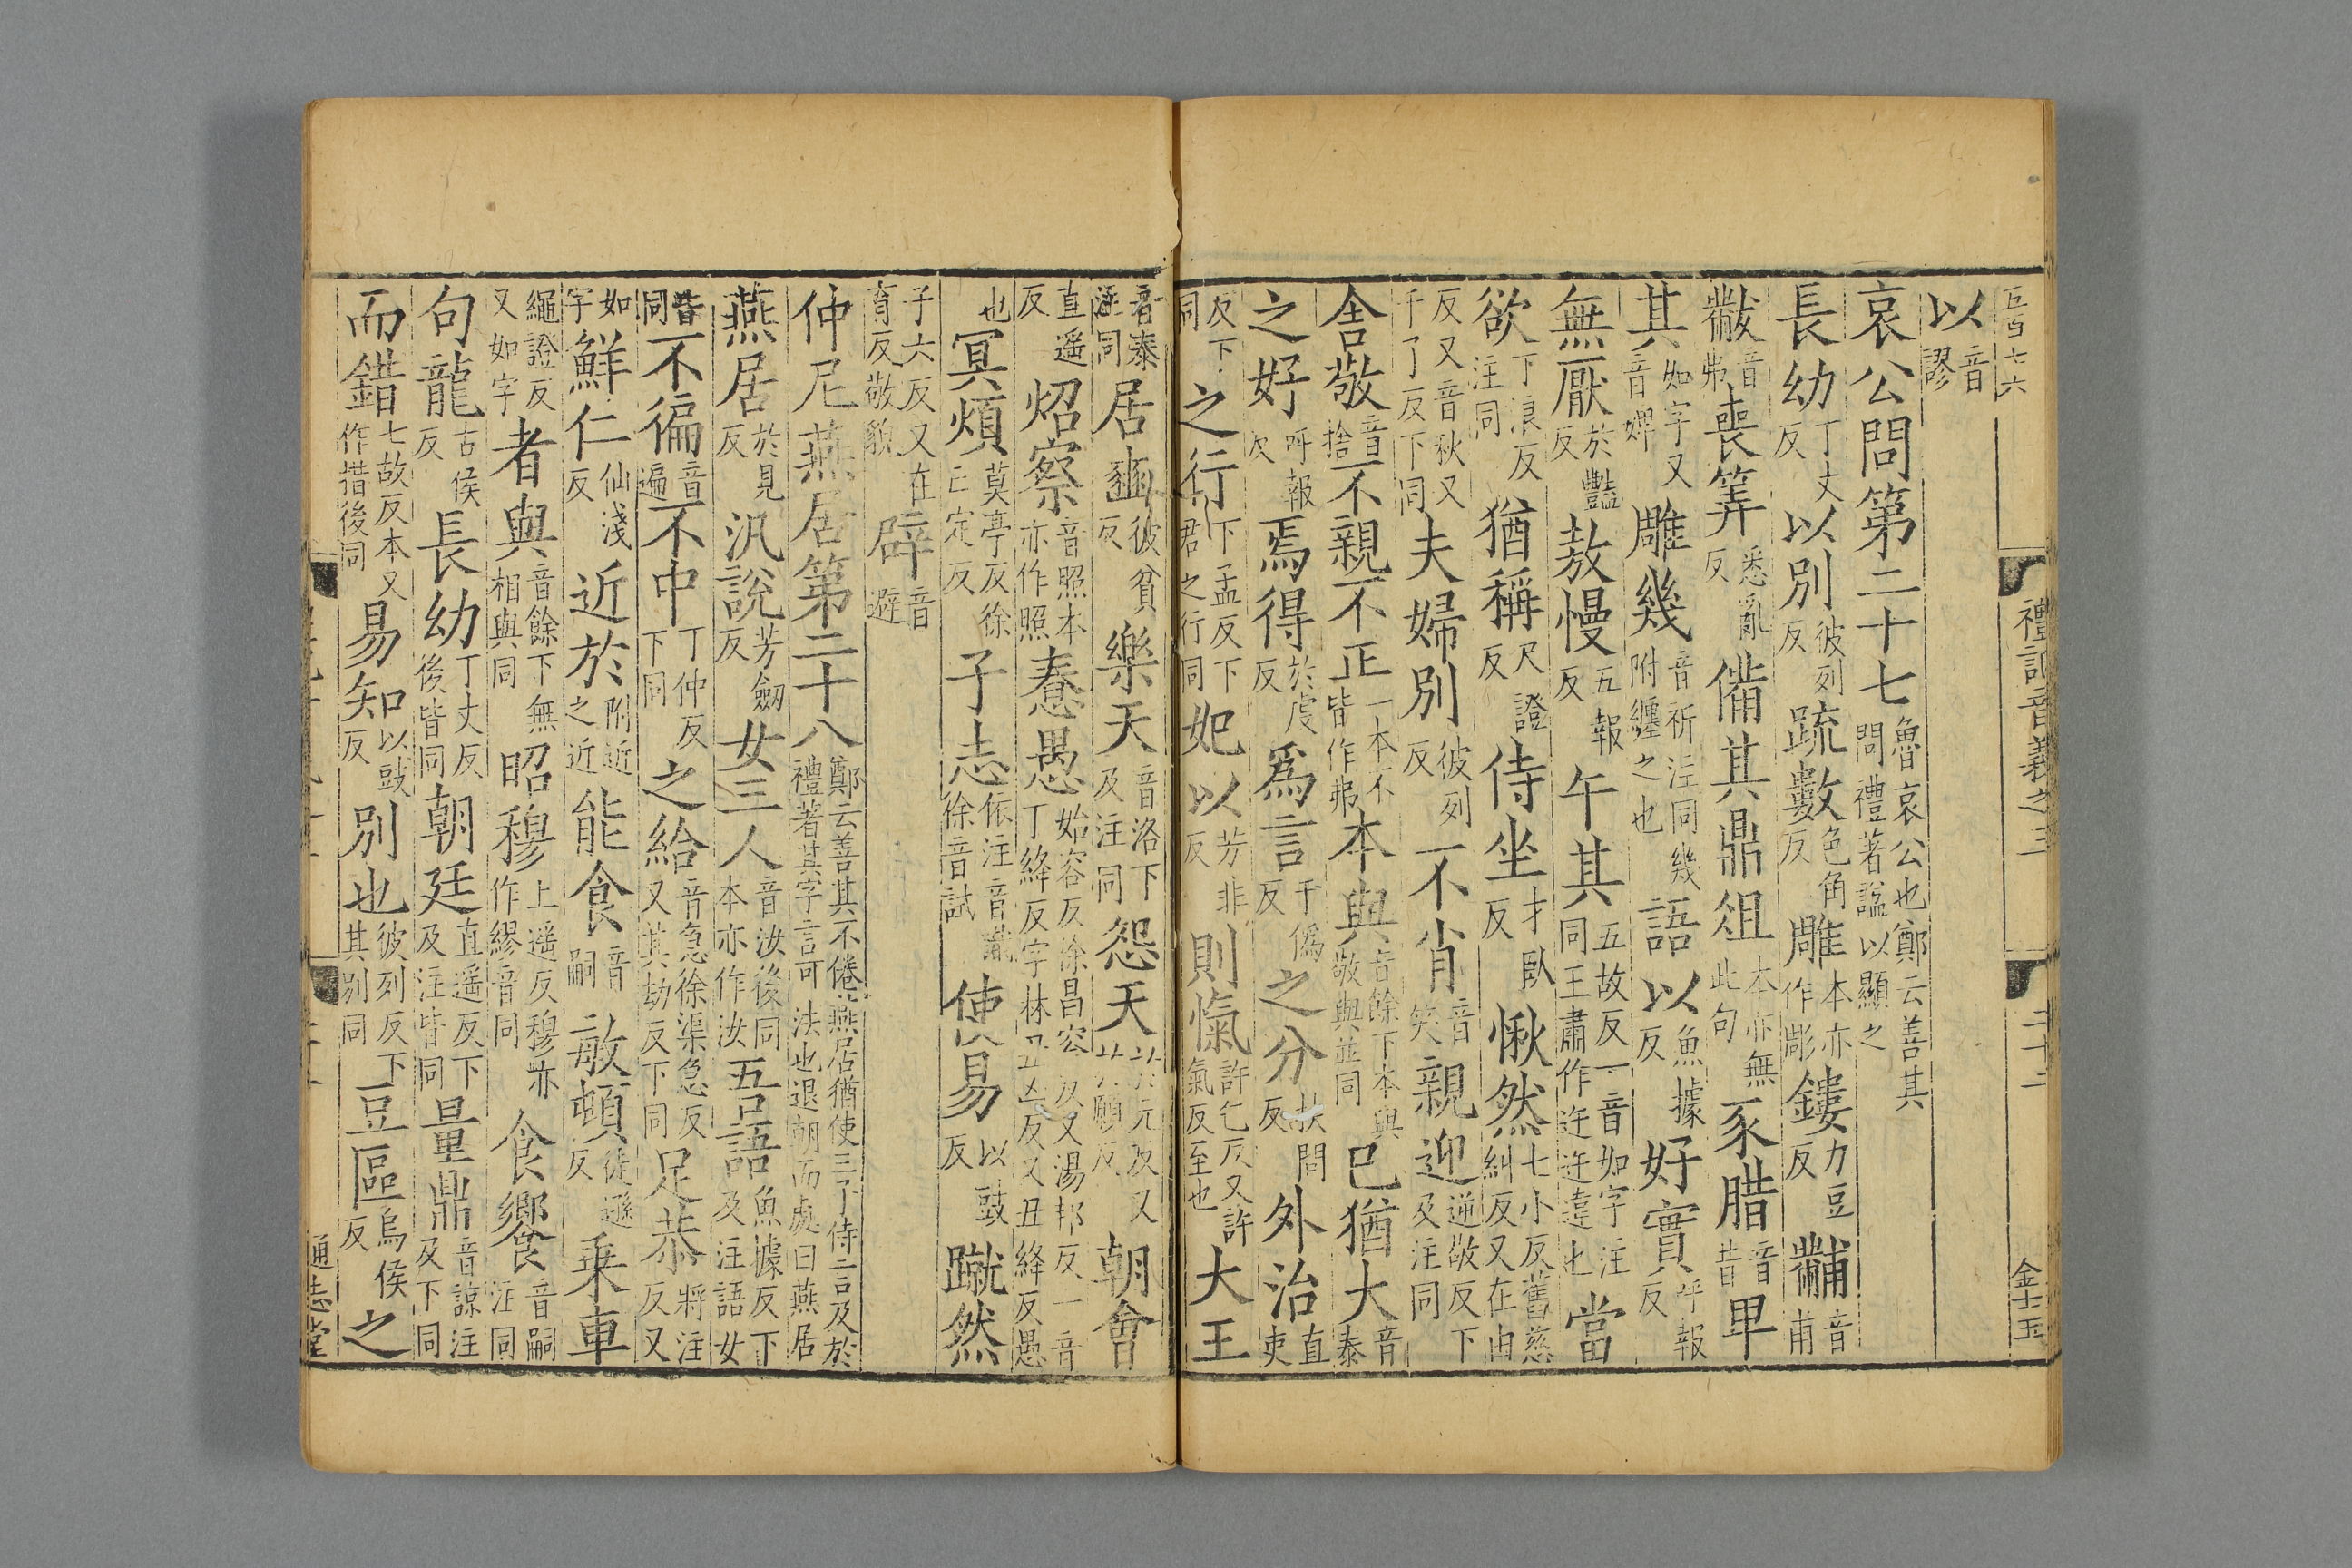 五百六六
禮記音義之三
二十二
金士玉
以音謬
哀公問第二十七魯哀公也鄭云善其問禮著謚以顯之
長幼丁丈反以別彼列反疏數色角反雕本亦作彫鏤力豆反黼音甫
黻音弗喪筭悉亂反備其鼎俎本亦無此句豕腊音昔卑
其如字又音婢雕幾音祈注同幾附纏之也語以魚據反好實呼報反
無厭於豔反敖慢五報反午其五故反一音如字注同王肅作迕迕違也當
欲丁浪反注同猶稱尺證反侍坐才臥反愀然七小反舊慈糾反又在由
反又音秋又千了反下同夫婦別彼列反不肖音笑親迎逆敬反下及注同
舍敬音捨不親不正一本不皆作弗本與音餘下本與敬與並同已猶大音泰
之好呼報反焉得於虔反為言于偽反之分扶問反外治直吏
反下同之行下孟反下君之行同妃以芳非反則愾許乞反又許氣反至也大王
音泰注同居豳彼貧反樂天音洛下及注同怨天於元反又於願反朝會
直遥反炤察音照本亦作照惷愚始容反徐昌容反又湯邦反一音丁絳反字林丑凶反又丑絳反愚
也冥煩莫亭反徐亡定反子志依注音識徐音試使易以豉反蹴然
子六反又在育反敬貌辟音避
仲尼燕居第二十八鄭云善其不倦燕居猶使三子侍言及於禮著其字言可法也退朝而處曰燕居
燕居於見反汎說芳劔反女三人音汝後同本亦作汝吾語魚據反下及注語女
皆同不徧音遍不中丁仲反下同之給音急徐渠急反又其劫反下同足恭將注反又
如字鮮仁仙淺反近於附近之近能食音嗣敦頓徒遜反乗車
繩證反又如字者與音餘下無相與同昭穆上遥反穆亦作繆音同食饗音嗣注同
句龍古侯反長幼丁丈反後皆同朝廷直遥反下及注皆同量鼎音諒注及下同
而錯七故反本又作措後同易知以豉反別也彼列反下其別同豆區烏侯反之
通志堂